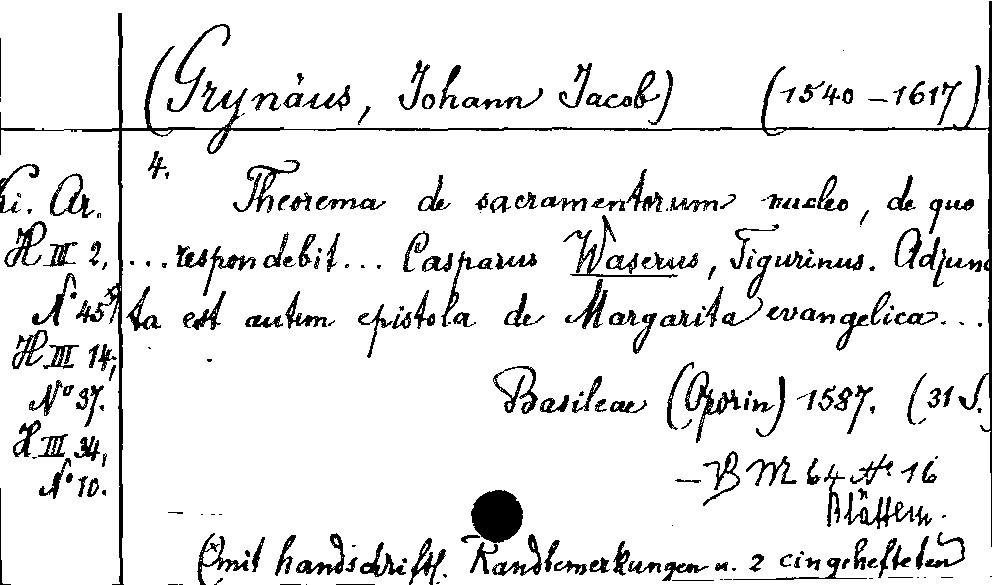 (Grynäus, Johann Jacob) (1540-1617)
4.
Ki. Ar. Theorema de sacramentorum nucleo, de quo
H III 2, ...respondebit... Casparus Waserus, Tigurinus. Adjunc
N° 45 ta est autem epistola de Margarita evangelica...
H III 14,
N° 37. Basileae (Oporin) 1587. (31 S.)
H III 34,
N° 10. - B M 64 N° 16
Blättern.
(mit handschriftl. Randbemerkungen u. 2 eingehefteten